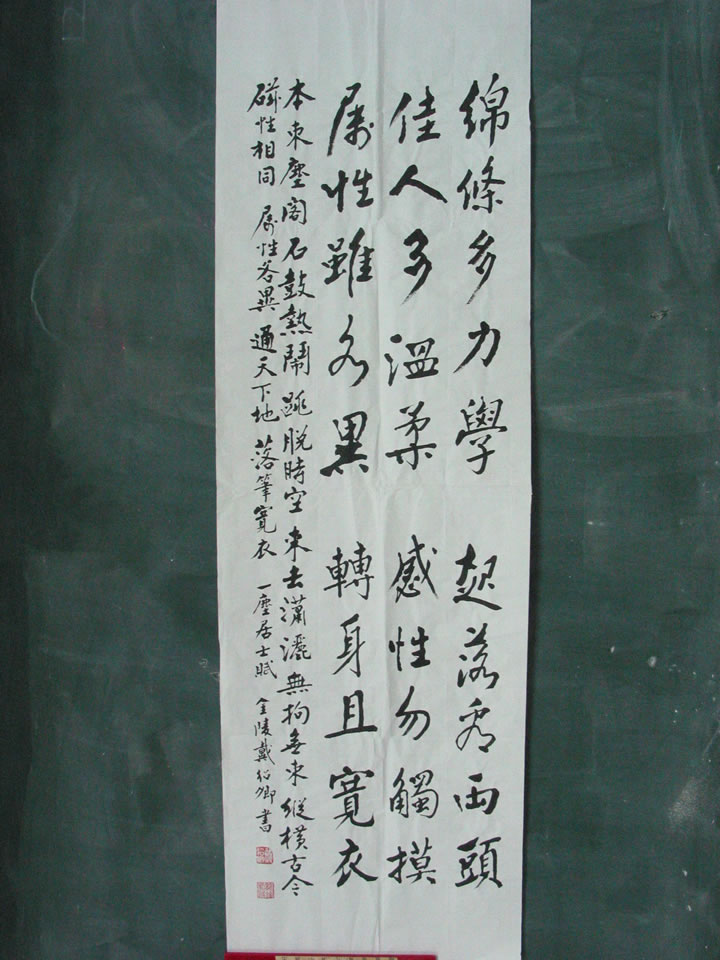 綿條多力學 起落看兩頭
佳人多溫柔 感性勿觸摸
属性雖各異 轉身且寬衣
本來塵閣 石鼓熱鬧 跳脫時空 來去瀟灑 無拘無束 縱橫古今
磁性相同 属性各異 通天下地 落筆寬衣 一塵居士賦 金陵戴紹卿書